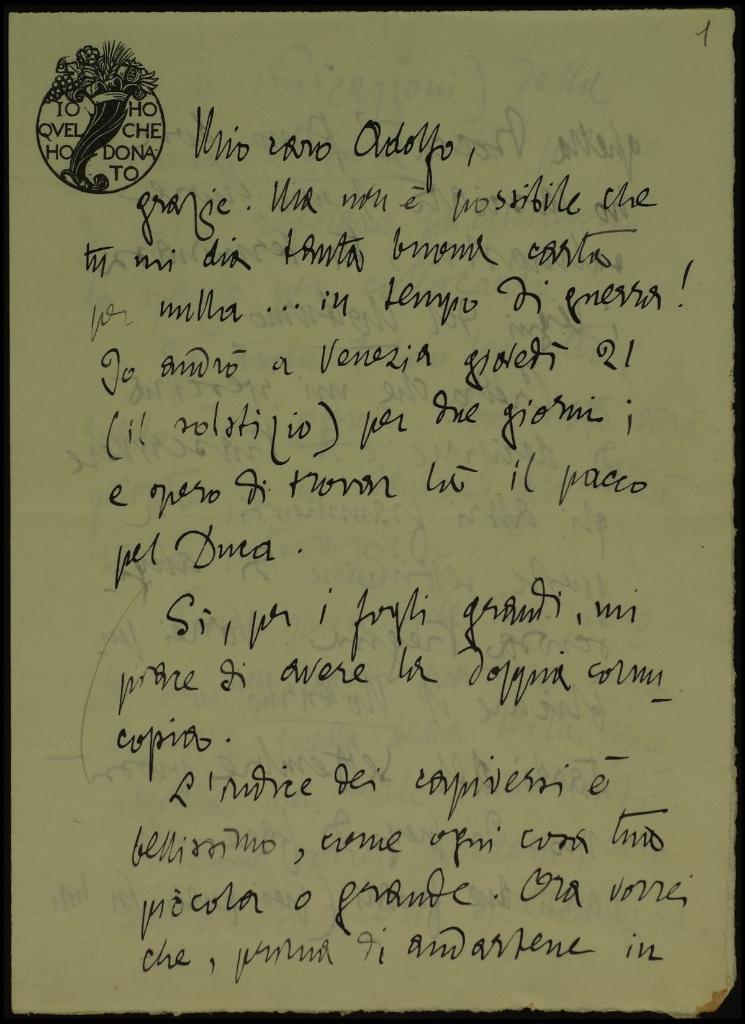 1
IO HO
QVEL CHE
HO DONA
TO
Mio caro Adolfo,
grazie. Ma non è possibile che
tu mi dia tanta buona carta
per nulla ... in tempo di guerra!
Io andrò a Venezia giovedì 21
(il solstizio) per due giorni;
e spero di trovar là il pacco
pel Duca.
Sì, per i fogli grandi, mi
piace di avere la doppia cornu_
copia.
L'indice dei capiversi è
bellissimo, come ogni cosa tua
piccola o grande. Ora vorrei
che, prima di andartene in